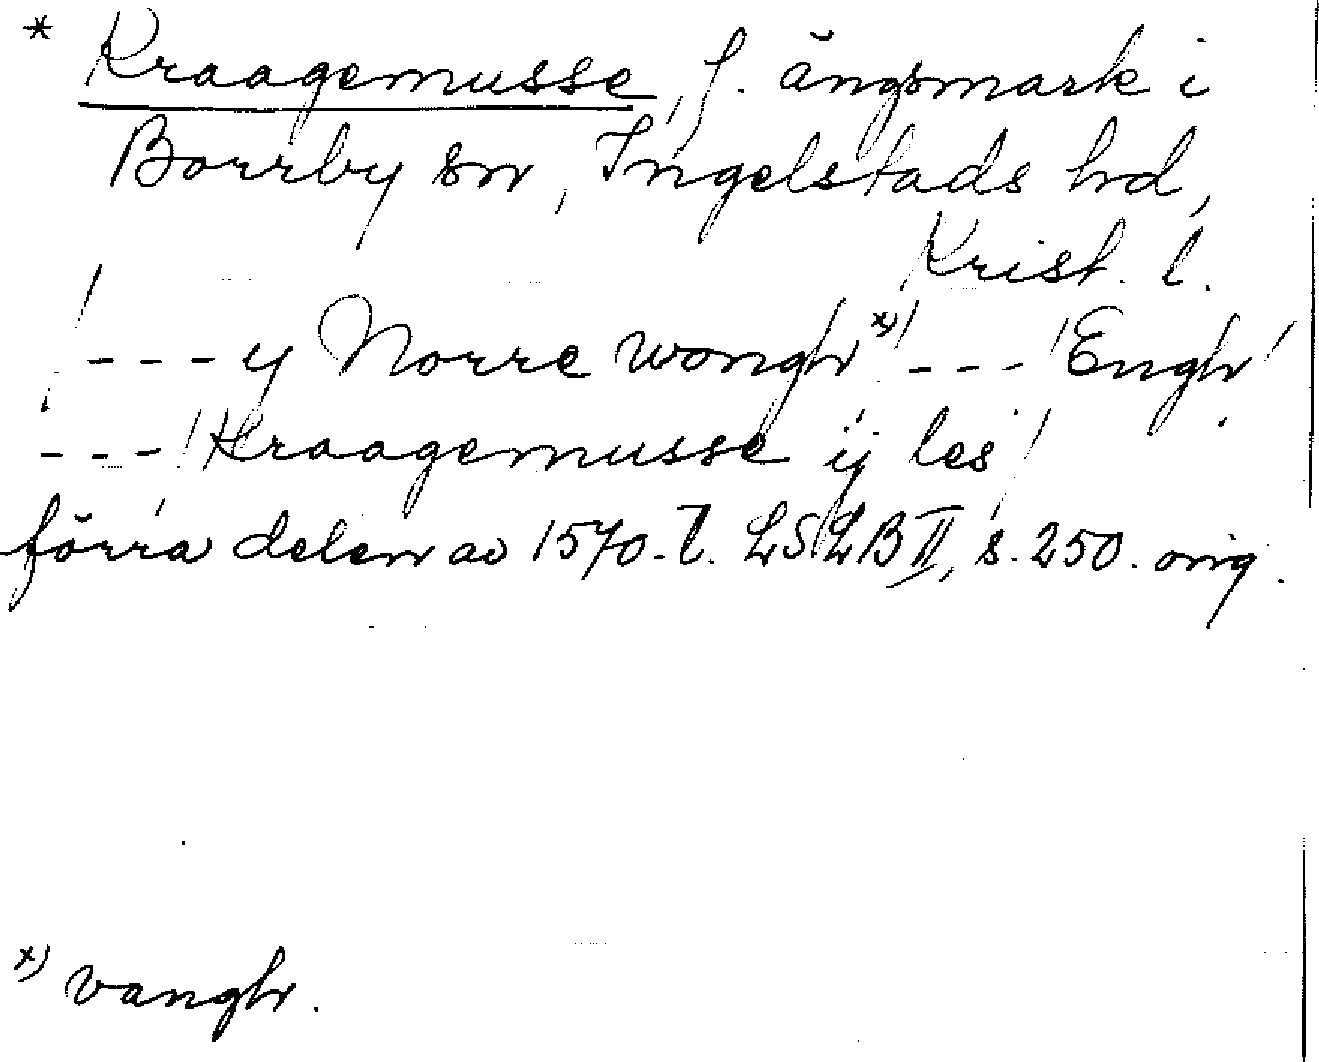 * Kraagemusse, f. ängsmark i
Borrby sn, Ingelstads hd,
Krist. l.
/--- y Norre wongh x)/ --- /Engh/
--- /Kraagemusse ij les/
förra delen av 1570-t. LSLB II, s. 250. orig.
x) vangh.